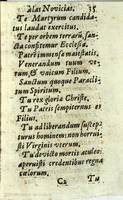 alas Novicias. 35
Te Martyrum candida-
tus laudat exercitus.
Te per orbem terarũ, san-
cta confitemur Ecclesia.
Patrem immensæ maiestatis,
Venerandum tuum ve-
rum, & vnicum Filium.
Sanctum quoque Paracli-
tum Spiritum,
Tu rex gloriæ Christe,
Tu Patris sempiternus es
Filius,
Tu ad liberandum suscep-
turus hominem: non horrui-
sti Virginis vterum,
Tu devicto mortis aculeo:
aperuisti credentibus regna
cælorum.
Tu